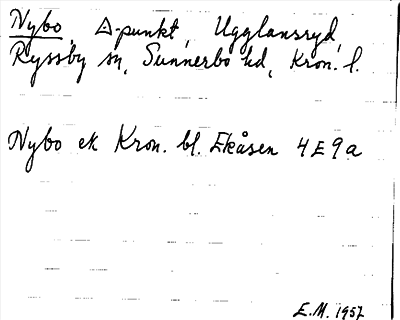 Nybo, △-punkt, Ugglansryd,
Ryssby sn, Sunnerbo hd, Kron. l.
Nybo ek Kron. bl. Ekåsen 4E9a
E.M. 1957